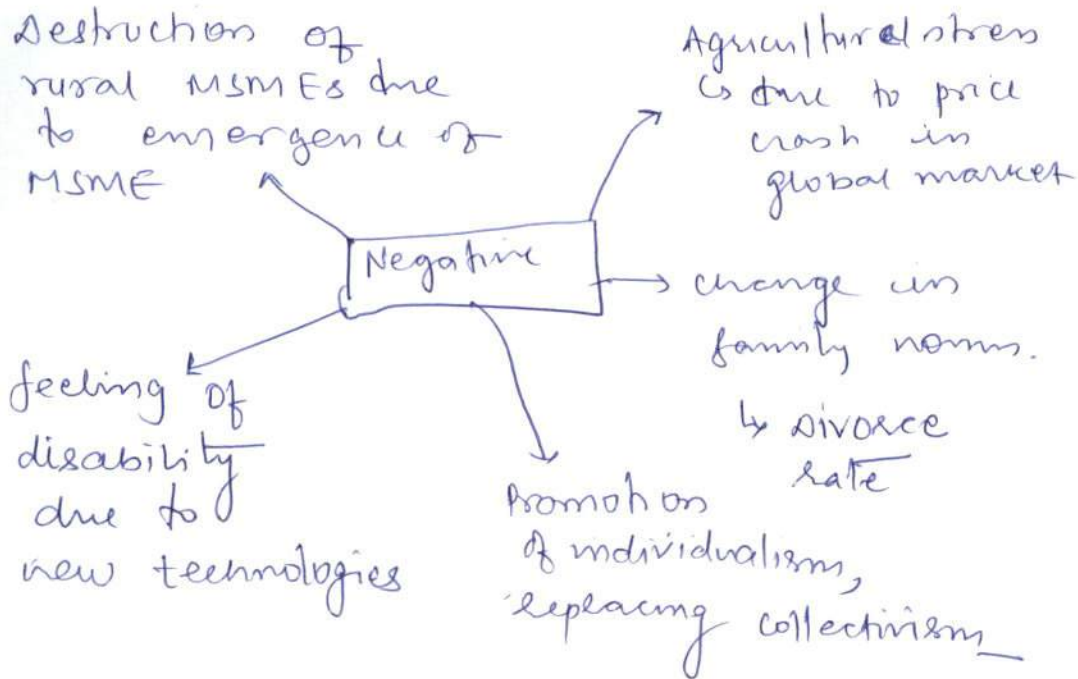 Destruction of
rural MSMEs due
to emergence of
MSME
Agricultural stress
↳ due to price
crash in
global market
Negative
→ change in
family norms.
↳ Divorce
rate
feeling of
disability
due to
new technologies
Promotion
of individualism,
replacing collectivism